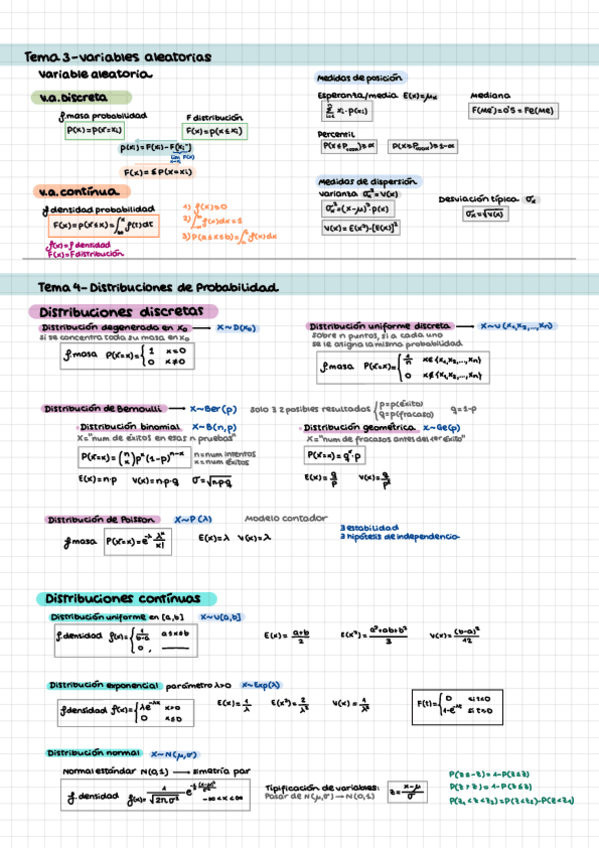 Tema 3-variables aleatorias
variable aleatoria
v.a. Discreta
f masa probabilidad
P(x)=p(x=xi)
F distribución
F(x)=p(x≤xi)
p(xi)=F(xi)-F(xi⁻)
lim F(x)
F(x)=≤p(x=xi)
v.a. contínua.
f densidad probabilidad
F(x)=p(x≤x)=∫f(t)dt
1) f(x)≥0
2) ∫f(x)dx=1
3) P(a≤x≤b)=∫f(x)dx
f(x)=f densidad
F(x)=F distribución
Medidas de posición
Esperanta/media E(x)=μx
Σ xi·p(xi)
Mediana
F(Me⁻)=0'5=F(Me)
Percentil
Medidas de dispersión
varianta σx²=V(x)
σx²=(x-μ)²·p(x)
V(x)=E(x²)-[E(x)]²
Desviación típica σx
σx=√V(x)
Tema 4- Distribuciones de Probabilidad
Distribuciones discretas
Distribución degenerada en x₀ → X~D(x₀)
si se concentra toda su masa en x₀
f masa P(x=x)= { 1 x=0
0 x≠0
Distribución uniforme discreta → X~U(x₁,x₂,...,xn)
sobre n puntos, si a cada uno
se le asigna la misma probabilidad
f masa P(x=x)= { 1/n x∈{x₁,x₂,...,xn}
0 x∉{x₁,x₂,...,xn}
Distribución de Bernoulli → X~Ber(p) solo ∃ 2 posibles resultados { p=p(éxito) q=1-p
q=p(fracaso)
Distribución binomial X~B(n,p)
X="num de éxitos en esas n pruebas"
P(x=x)=(n x)pˣ(1-p)ⁿ⁻ˣ
n=num intentos
x=num éxitos
E(x)=n·p V(x)=n·p·q σ=√n·p·q
Distribución geométrica X~Ge(p)
X="num de fracasos antes del 1er éxito"
P(x=x)=qˣ·p
E(x)=q/p V(x)=q/p²
Distribución de Poisson X~P(λ) Modelo contador
f masa P(x=x)=e^-λ λˣ/x! E(x)=λ V(x)=λ
∃ estabilidad
∃ hipótesis de independencia
Distribuciones contínuas
Distribución uniforme en [a,b] X~U[a,b]
f densidad f(x)= { 1/b-a a≤x≤b
0 ,
E(x)=a+b/2 E(x²)=a²+ab+b²/3 V(x)=(b-a)²/12
Distribución exponencial parámetro λ>0 X~Exp(λ)
f densidad f(x)= { λe^-λx x>0
0 x≤0
E(x)=1/λ E(x²)=2/λ² V(x)=1/λ²
F(t)= { 0 si t≤0
1-e^-λt si t>0
Distribución normal X~N(μ,σ)
Normal estándar N(0,1) → simetría par
-∞<x<∞
Tipificación de variables:
Pasar de N(μ,σ)→N(0,1)
z=x-μ/σ
P(z≤-z)=1-P(z≤z)
P(z>z)=1-P(z≤z)
P(z₁<z<z₂)=P(z<z₂)-P(z<z₁)